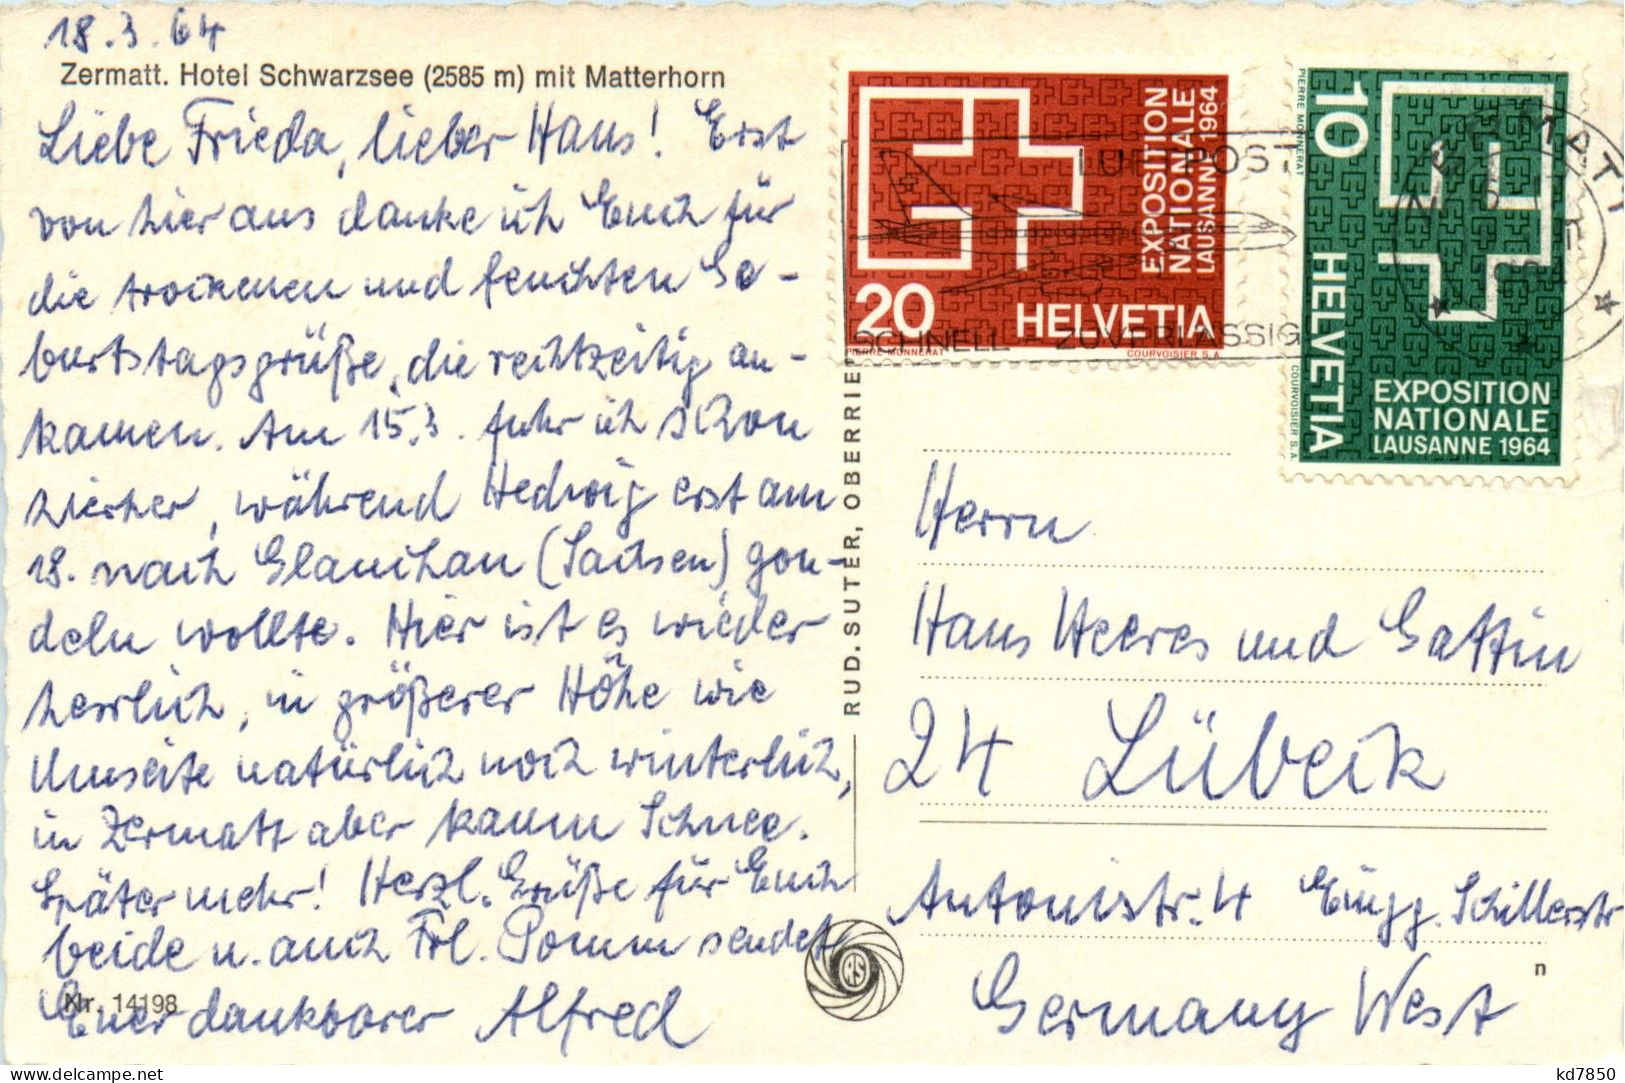 18.3.64
Zermatt. Hotel Schwarzsee (2585 m) mit Matterhorn
Liebe Frieda, lieber Hans! Erst
von hier aus danke ich Euch für
die trockenen und feuchten Ge-
burtstagsgrüße, die rechtzeitig an-
kamen. Am 15.3. fuhr ich schon
hierher, während Hedwig erst am
18. nach Glauchau (Sachsen) gon-
deln wollte. Hier ist es wieder
herrlich, in größerer Höhe wie
Umseite natürlich noch winterlich,
in Zermatt aber kaum Schnee.
Später mehr! Herzl. Grüße für Euch
beide u. auch Frl. Pomm sendet
Euer dankbarer Alfred
Nr. 14198
RUD. SUTER, OBERRIE
RS
EXPOSITION
NATIONALE
LAUSANNE 1964
20
HELVETIA
PIERRE MONNERAT
COURVOISIER S.A.
LUFTPOST
SCHNELL - ZUVERLÄSSIG
PIERRE MONNERAT
10
HELVETIA
EXPOSITION
NATIONALE
LAUSANNE 1964
COURVOISIER S.A.
ZERMATT
Herrn
Hans Heeres und Gattin
24 Lübeck
Antonistr. 4 Eingg. Schillerstr
n
Germany West
kd7850